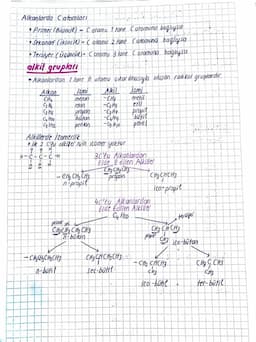 Alkanlarda C atomları
• Primer (Birincil) - C atomu 1 tane C atomuna bağlıysa
• Sekonder (ikincil) - C atomu 2 tane C atomuna bağlıysa
• Tersiyer (Üçüncül) - C atomu 3 tane C atomuna bağlıysa
alkil grupları
• Alkanlardan 1 tane H atomu çıkarılmasıyla oluşan radikal gruplarıdır.
Alkan İsmi Alkil İsmi
CH4 metan -CH3 metil
C2H6 etan -C2H5 etil
C3H8 propan -C3H7 propil
C4H10 bütan -C4H9 bütil
C5H12 pentan -C5H11 pentil
Alkillerde İzomerlik
• ilk 2 C'lu alkilin izomer yoktur
H-C-C-C-H
3C'lu Alkanlardan
Elde Edilen Alkiller
CH3CH2CH3
propan
-CH2CH2CH3
n-propil
CH3CHCH3
izo-propil
4C'lu Alkanlardan
Elde Edilen Alkiller
C4H10
CH3CH2CH2CH3
n-bütan
CH3CHCH3
CH3
izo-bütan
-CH2CH2CH2CH3
n-bütil
CH3CHCH2CH3
sec-bütil
-CH2CHCH3
CH3
izo-bütil
CH3CCH3
CH3
ter-bütil